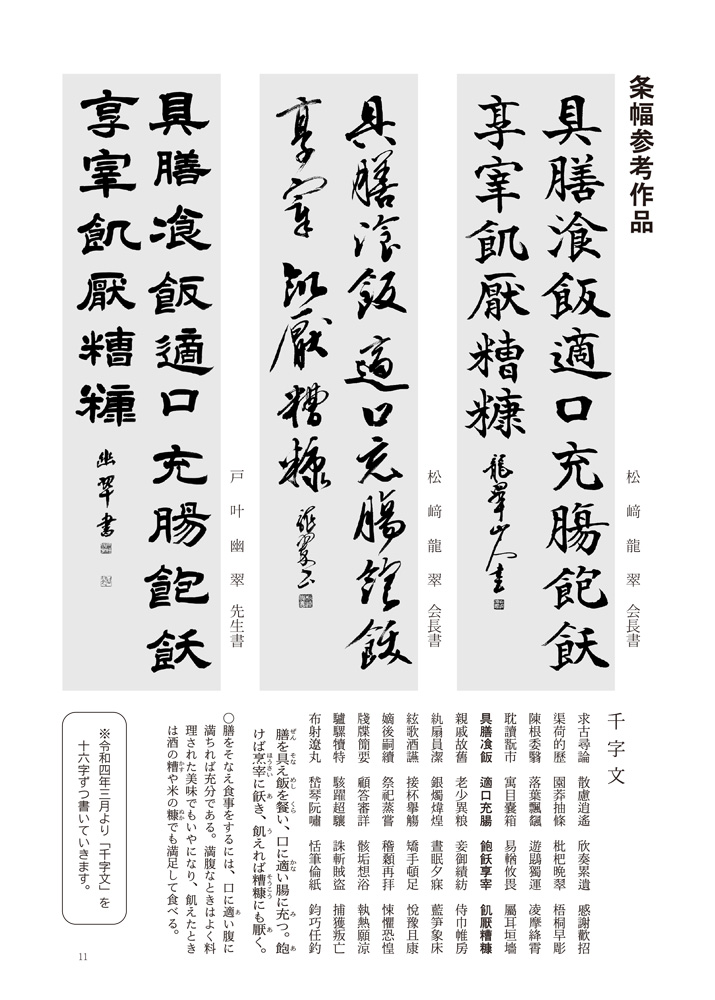 条幅参考作品
具膳飡飯適口充膓飽飫
享宰飢厭糟糠 龍翠山人書
松﨑龍翠 会長書
具膳飡飯適口充膓飽飫
享宰飢厭糟糠 龍翠書
松﨑龍翠 会長書
具膳飡飯適口充膓飽飫
享宰飢厭糟糠 幽翠書
戸叶幽翠 先生書
千字文
求古尋論 散慮逍遙 欣奏累遣 感謝歡招
渠荷的歷 園莽抽條 枇杷晩翠 梧桐早彫
陳根委翳 落葉飄颻 遊鵾獨運 凌摩絳霄
耽讀翫市 寓目囊箱 易輶攸畏 屬耳垣墻
具膳飡飯 適口充腸 飽飫享宰 飢厭糟糠
親戚故舊 老少異粮 妾御績紡 侍巾帷房
紈扇員潔 銀燭煒煌 晝眠夕寐 藍笋象床
絃歌酒讌 接杯擧觴 矯手頓足 悅豫且康
嫡後嗣續 祭祀蒸嘗 稽顙再拝 悚懼恐惶
牋牒簡要 顧答審詳 骸垢想浴 執熱願涼
驢騾犢特 駭躍超驤 誅斬賊盗 捕獲叛亡
布射遼丸 嵆琴阮嘯 恬筆倫紙 鈞巧任釣
膳を具え飯を餐い、口に適い腸に充つ。飽
けば烹宰に飫き、飢えれば糟糠にも厭く。
〇膳をそなえ食事をするには、口に適い腹に
満ちれば充分である。満腹なときはよく料
理された美味でもいやになり、飢えたとき
は酒の糟や米の糠でも満足して食べる。
※令和四年三月より「千字文」を
十六字ずつ書いていきます。
11